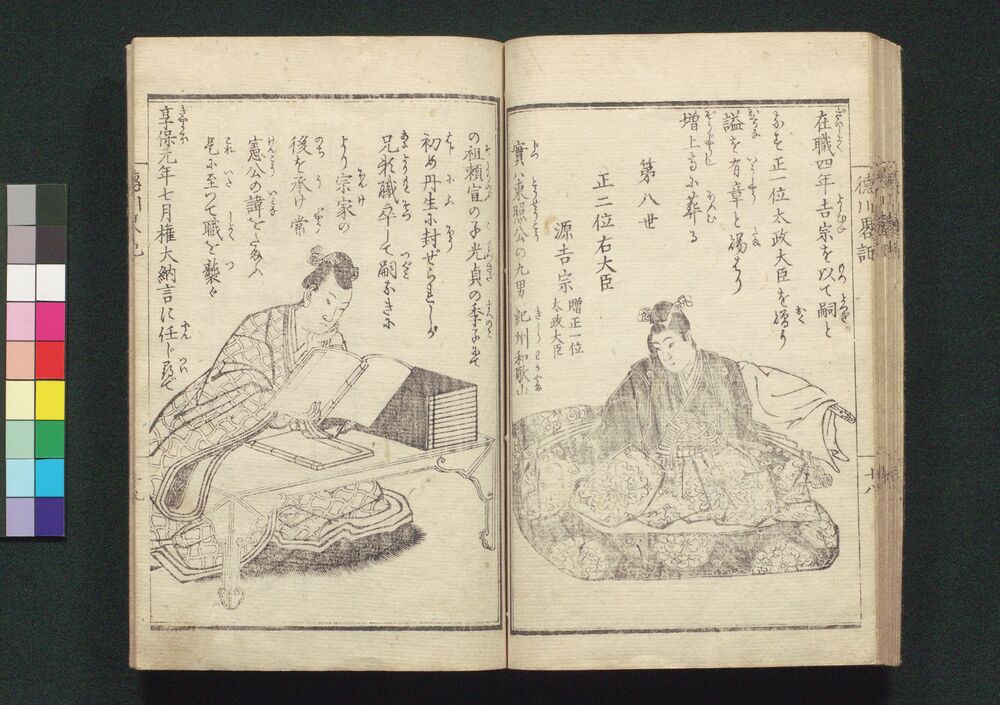 在職四年吉宗を以て嗣と
なす正一位太政大臣を贈り
謚を有章と賜ふ
増上寺に葬る
第八世
正二位右大臣
源吉宗
贈正一位
太政大臣
實ハ東照公の九男 紀州和歌山
徳川畧記
十八
の祖頼宣の子光貞の季子にて
初め丹生に封ぜられしが
兄頼職卒して嗣なきに
より宗家の
後を承け常
憲公の諱をたまへ
是に至つて職を襲ぐ
享保元年七月権大納言に任ト尋で